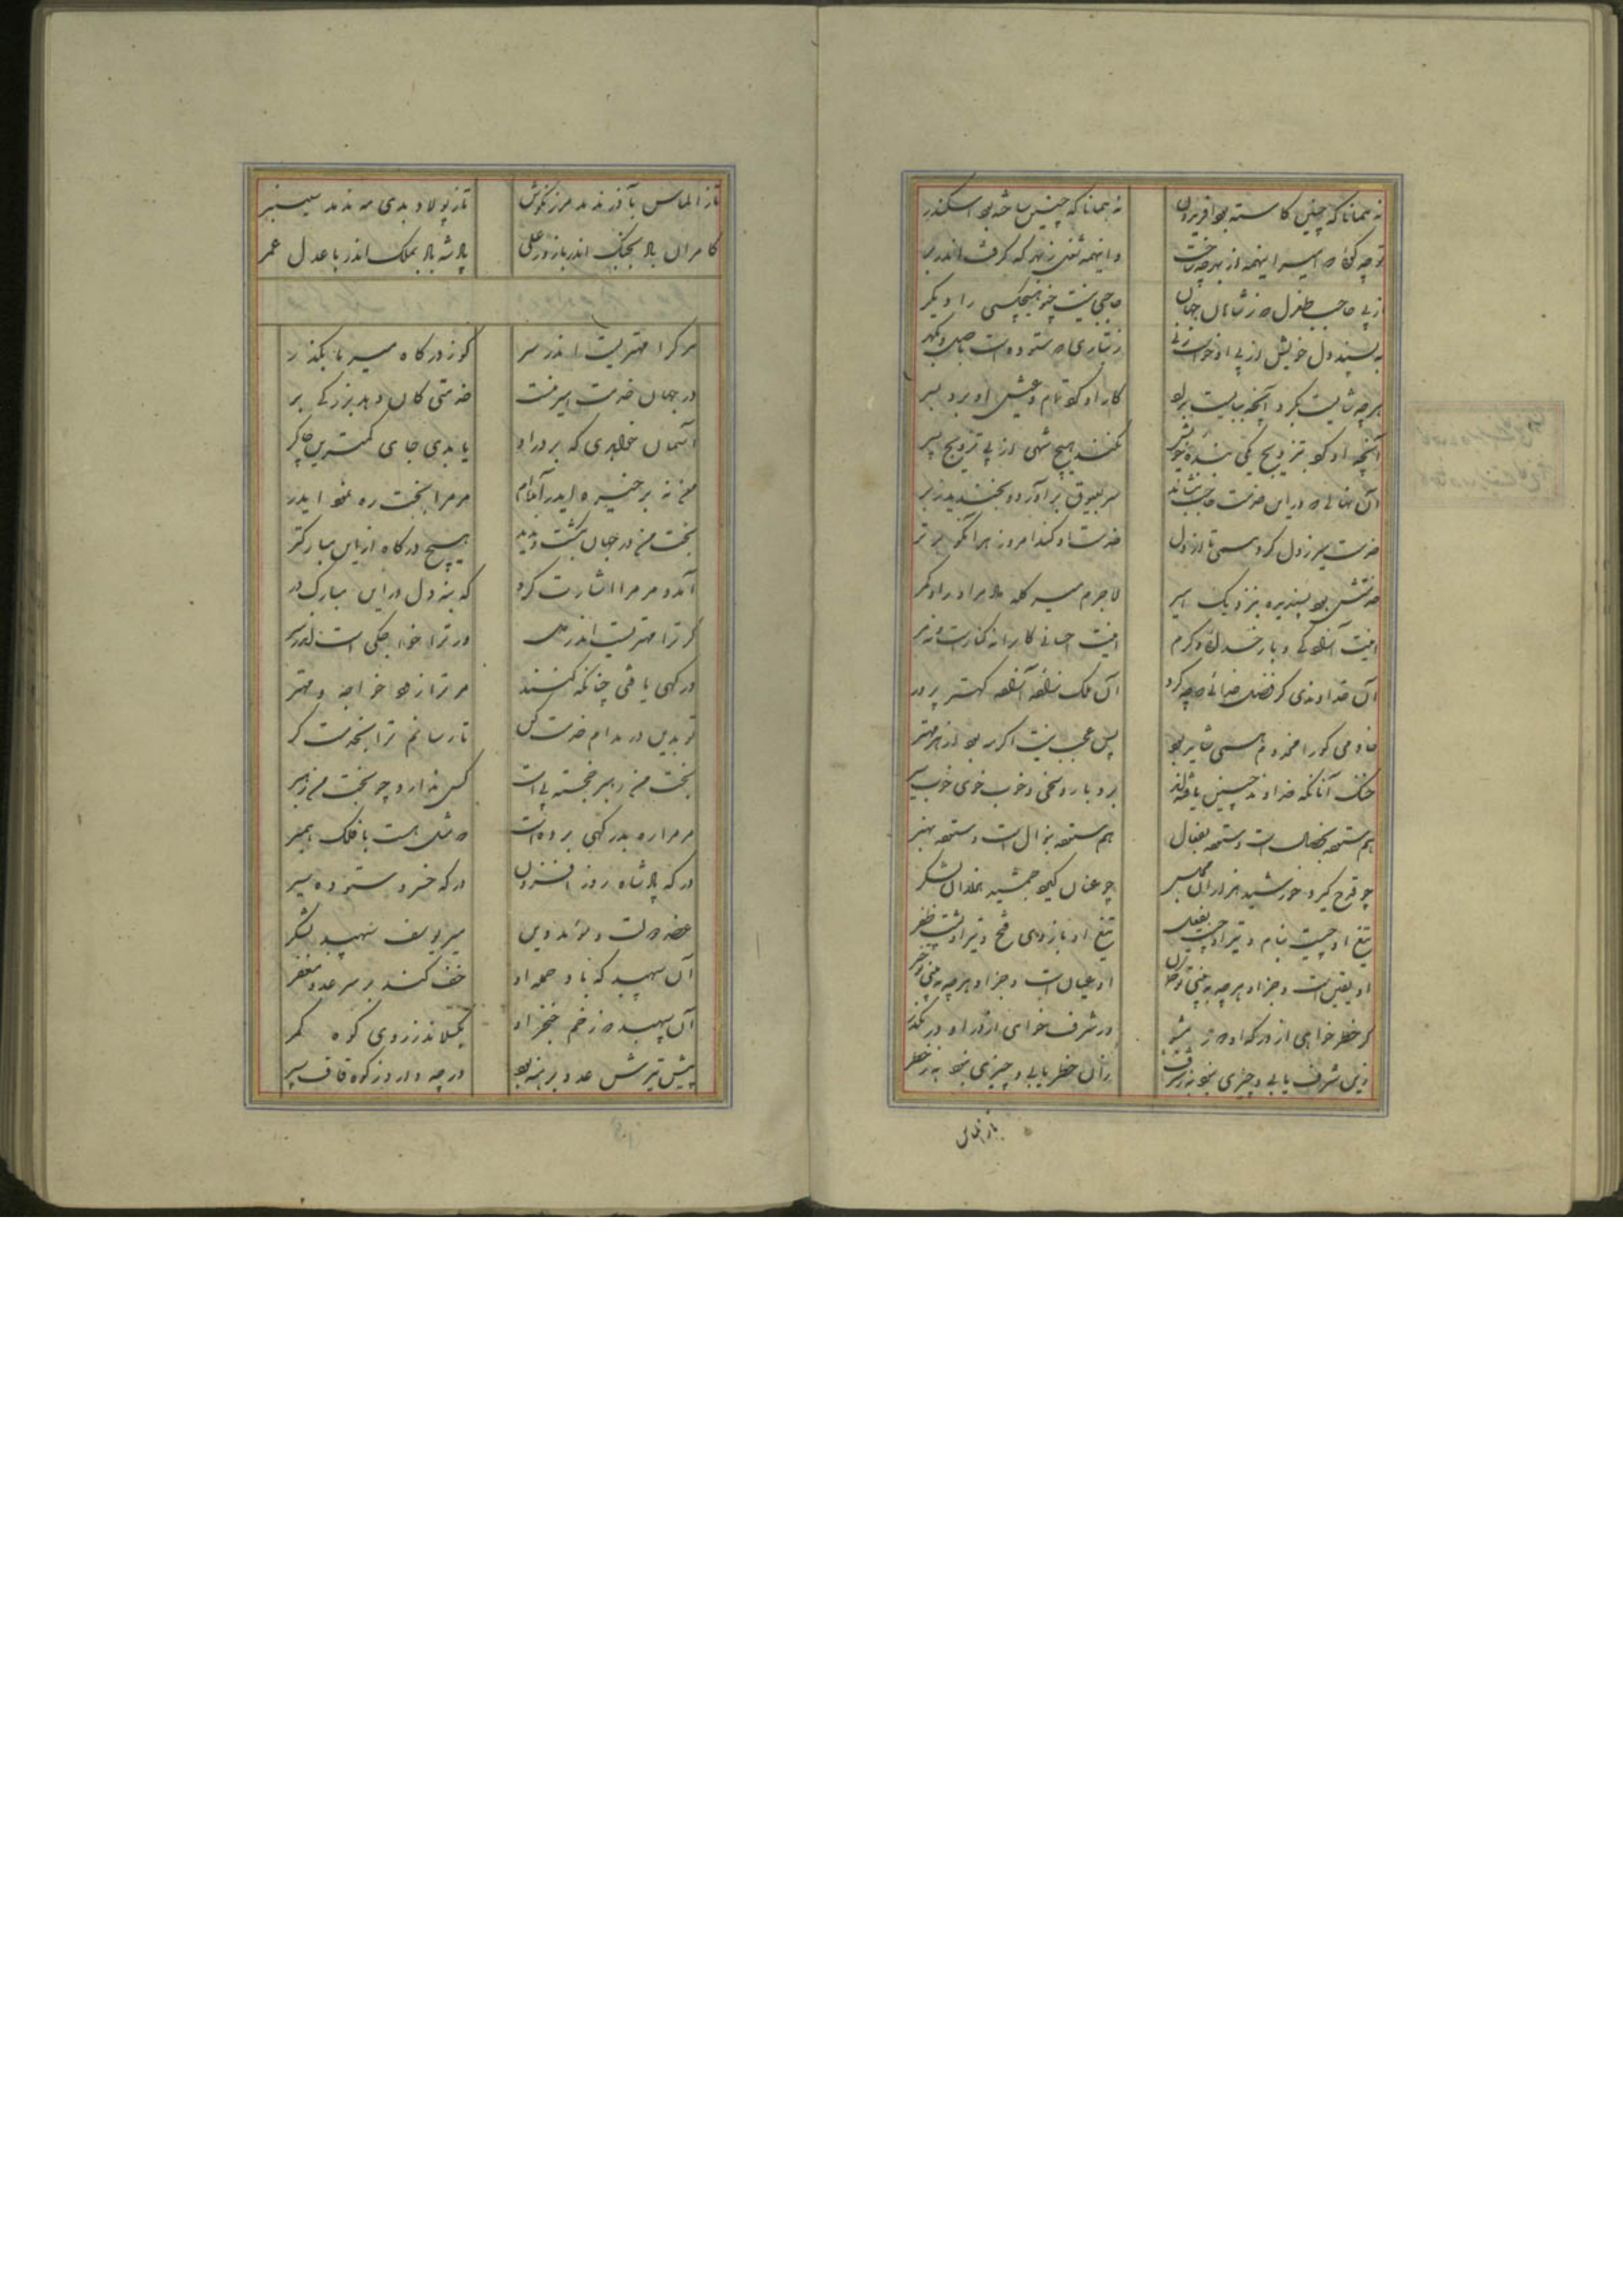 نه همانا که چنین کاسته بود افریدون نه همانا که چنین ساخته بود اسکندر
تو چه گوئی که امیر اینهمه از بهر چه ساخت و اینهمه شغل ز بهر که گرفت اندر بر
از پی حاجب طغرل که ز شاهان جهان حاجبی نیست چنو هیچکسی را دیگر
به پسند دل خویش از پی او خواست زنی ز تباری که ستوده است باصل و گهر
هرچه شایست بکرد آنچه ببایست بداد کار او کرد تمام و عیش او برد بسر
آنچه او کرد بتزویج یکی بنده خویش نکند هیچ شهی از پی تزویج پسر
آن نهالی که در این خدمت حاجب بنشاند سر بعیوق برآورد و ببخشید ببر
خدمت میر ز دل کرد همی تا از دل خدمت او کند امروز هر آنکو برتر
خدمتش بود پسندیده بنزدیک امیر لاجرم میر کله داد مر او را و کمر
اینت آزادگی و بار خدائی و کرم اینت احسانی کانرا نه کنارست و نه مر
آن خداوندی کز فضل خدائی چه کرد آن ملک زاده آزاده کهتر پرور
خادمی کو را مخدوم همی شایر بود پس عجب نیست اگر بود از هر مهتر
خنک آنانکه خداوند چنین یافته‌اند بردبار و سخی و خوب خوی و خوب سیر
هم ستوده بخصال است و ستوده بفعال هم ستوده بنوال است و ستوده بهنر
چو قدح گیرد خورشید هزاران مجلس چو عنان گیرد جمشید هزاران لشکر
تیغ او چیست بنام و تیر او چیست بفعل تیغ او بازوی فتح و تیر او پشت ظفر
او یقین است و جز او هرچه به بینی تو ظن او عیان است و جز او هرچه به بینی تو خبر
گر خطر خواهی از درگه او دور مشو ور شرف خواهی از در او در مگذر
زین شرف یابی و چیزی نبود به ز شرف زان خطر یابی و چیزی نبود به ز خطر
باز الماس
تاز الماس بآذر ندمد مرزنگوش تاز پولاد بدی مه ندمد سیسنبر
کامران باد بجنگ اندر با زور علی پادشه باد بملک اندر با عدل عمر
هرکرا مهتریست اندر سر گو ز درگاه میر ما مگذر
در جهان خدمت امیر منست خدمتی کان دهد بزرگی بر
آسمان خواهدی که بر در او یابدی جای کمترین چاکر
من نه بر خیره ایدر آمده‌ام مر مرا بخت ره نمود ایدر
بخت من در جهان بگشت و ندید هیچ درگاه از این مبارکتر
آمد و مر مرا اشارت کرد که بنه دل در این مبارک در
گر ترا مهتریست اندر دل ور ترا خواجگی است اندر سر
در گهی یافتی چنانکه کنند مر ترا زود خواجه و مهتر
تو بدین در مدام خدمت کن تا رسانم ترا بخدمت گر
بخت من رهبر خجسته پی است کس ندارد چو بخت من رهبر
مر مرا ره بدرگهی بر دوه است که مثل هست با فلک همبر
درگه پادشاه روز افزون درگه خسرو ستوده سیر
عضد دولت و مؤید دین میر یوسف سپهبد لشکر
آن سپهبد که باد حمله او خف کند بر سر عدو مغفر
آن سپهبد که زخم خنجر او بگسلاند ز روی کوه کمر
پیش تیرش عدو برهنه بود ورچه دارد ز کوه قاف سپر